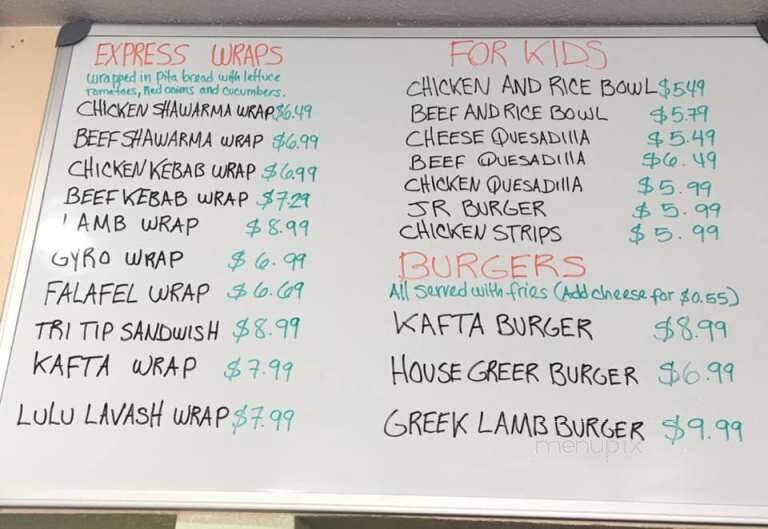 EXPRESS WRAPS
wrapped in Pita bread with lettuce
Tomatoes, Red onions and cucumbers.
CHICKEN SHAWARMA WRAP $6.49
BEEF SHAWARMA WRAP $6.99
CHICKEN KEBAB WRAP $6.99
BEEF KEBAB WRAP $7.29
LAMB WRAP $8.99
GYRO WRAP $6.99
FALAFEL WRAP $6.69
TRI TIP SANDWISH $8.99
KAFTA WRAP $7.99
LULU LAVASH WRAP $7.99
FOR KIDS
CHICKEN AND RICE BOWL $5.49
BEEF AND RICE BOWL $5.79
CHEESE QUESADIllA $5.49
BEEF QUESADIllA $6.49
CHICKEN QUESADIllA $5.99
JR BURGER $5.99
CHICKEN STRIPS $5.99
BURGERS
All served with fries (Add cheese for $0.55)
KAFTA BURGER $8.99
HOUSE GREER BURGER $6.99
GREEK LAMB BURGER $9.99
menupix